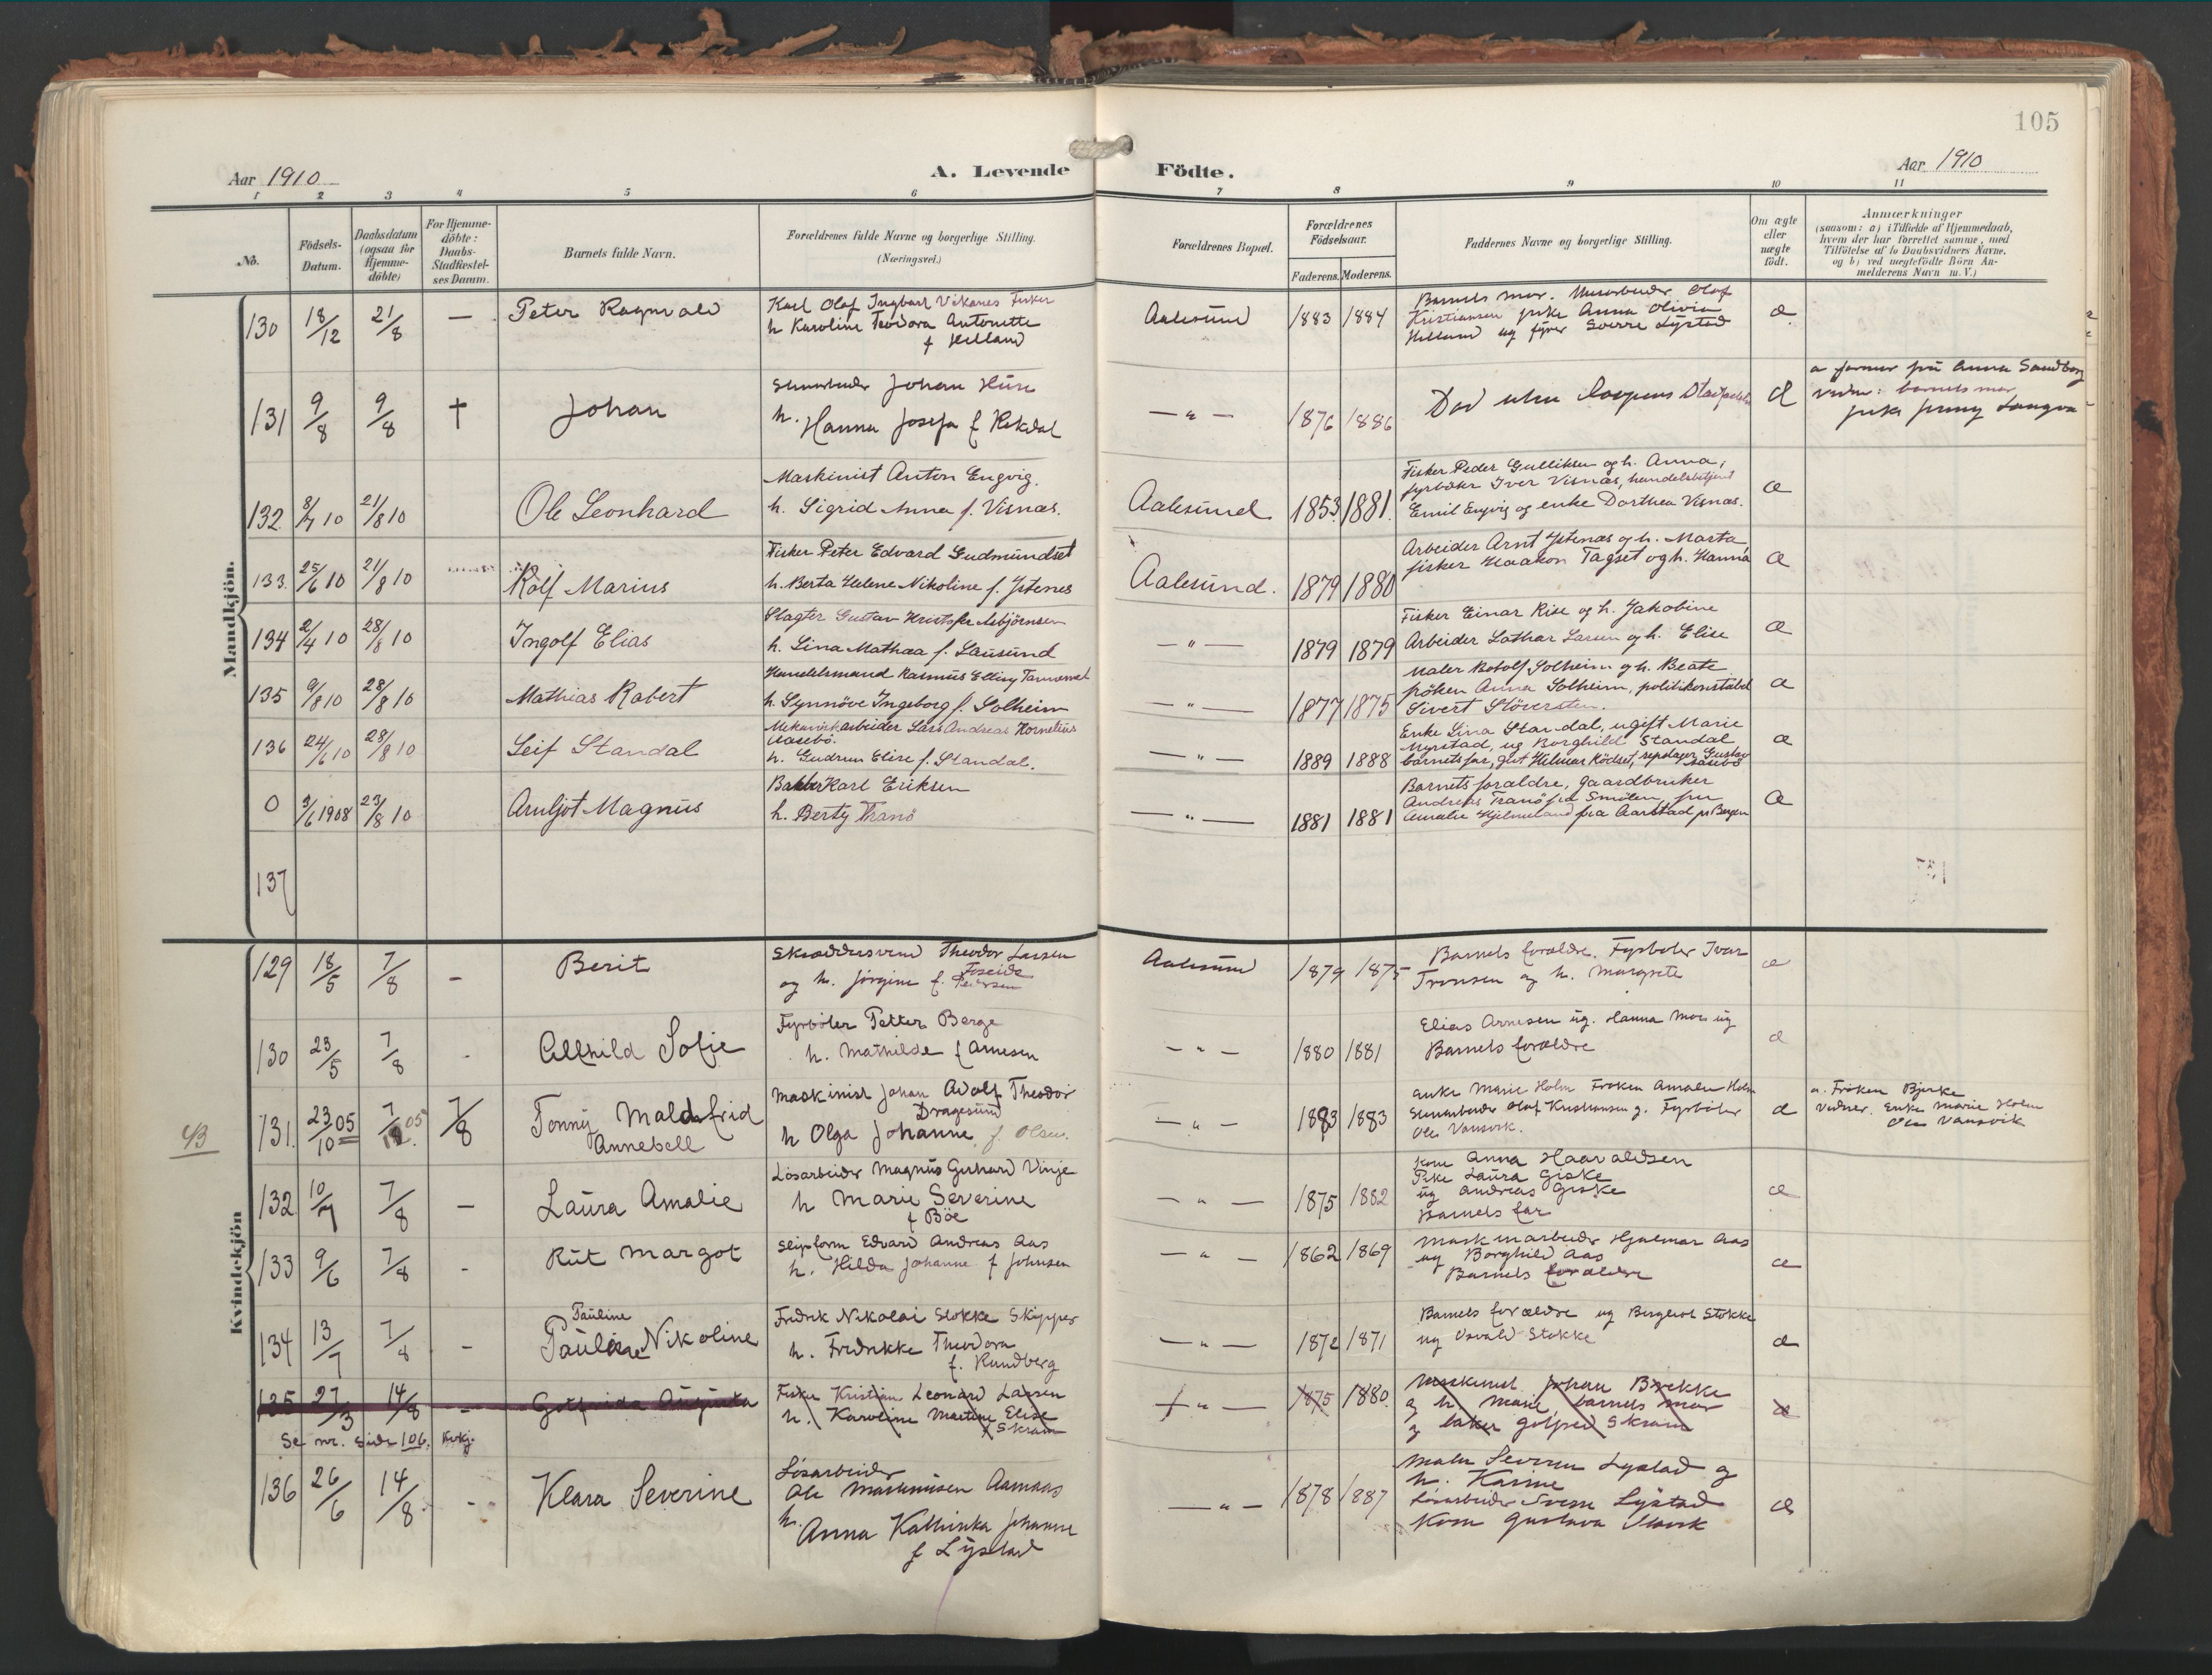 105
Aar 1910
A. Levende Födte.
Aar 1910
1 2 3 4 5 6 7 8 9 10 11
No.
Födsels-Datum.
Daabsdatum (ogsaa for Hjemme-döbte)
For Hjemme-döbte: Daabs-Stadfæstel-ses Datum.
Barnets fulde Navn.
Forældrenes fulde Navne og borgerlige Stilling.
(Næringsvei.)
Forældrenes Bopæl.
Forældrenes Födselsaar.
Faderens. Moderens.
Faddernes Navne og borgerlige Stilling.
Om ægte eller uægte födt.
Anmærkninger
(saasom: a) i Tilfælde af Hjemmedaab,
hvem der har forrettet samme, med
Tilföielse af to Daabsvidners Navne.
og b) ved uægtefödte Börn An-
melderens Navn m. V.)
Mandkjön.
130 18/12 21/8 — Peter Ragnvald
Karl Olaf Ingbart Vikanes Fisker
h Karoline Teodora Antonette
f Helland
Aalesund 1883 1884
Barnets mor. Olaf
Kristiansen pike Anna Olivia
Helland og fyrb Sverre Lystad
æ
131 9/8 9/8 † Johan
Johan
h. Hanna Josefa f Rekdal
— " — 1876 1886
Död uden
æ
a Anna Sandberg
vidner: barnets mor
pike Jenny Langva
132 8/7 10 21/8 10 Ole Leonhard
Maskinist Anton Engvig.
h. Sigrid Anna f. Visnæs.
Aalesund 1853 1881.
Fisker Peder Gulliksen og h. Anna,
fyrbøter Iver Visnæs, handelsbetjent
Emil Engvig og enke Dorthea Visnæs.
æ
133. 25/6 10 21/8 10 Rolf Marius
Fisker Peter Edvard Gudmundset
h. Berta Helene Nikoline f. Ystenes
Aalesund. 1879 1880
Arbeider Arnt Ystenæs og h. Marta
fisker Haakon Tagset og h. Hanna
æ
134 2/4 10 28/8 10 Ingolf Elias
Slagter Gustav Kristofer Asbjörnsen
h. Lina Mathea f. Lausund
— " — 1879 1879
Fisker Einar Rise og h. Jakobine
Arbeider Lothar Larsen og h. Elise
æ
135 9/8 10 28/8 10 Mathias Robert
Handelsmand Rasmus Elling
h. Synnöve Ingeborg f. Solheim
— " — 1877 1875
Maler Botolf Solheim og h. Beate
fröken Anna Solheim, politikonstabel
Sivert Störersten.
æ
136 24/6 10 28/8 10 Leif Standal
Mekanikarbeider Lars Andreas Kornelius
Aasebö.
h. Gudrun Elise f. Standal.
— " — 1889 1888
Enke Lina Standal, ugift Marie
Myrstad, ug Borghild Standal
barnets far, gut Hilmar Rödset, repslager Gustav
Aasebö
æ
0 3/6 1908 23/8 10 Arnljot Magnus
Bakker Karl Eriksen
h. Berty Tranö
— " — 1881 1881
Barnets forældre, gaardbruker
Andreas Tranö fra Smölen, fru
Amalie Hjelmeland fra Aarstad pr Bergen
æ
137
Kvindekjön
129 18/5 7/8 - Berit
Skræddersvend Theodor Larsen
og h. Jörgine f. Foseide
Pedersen
Aalesund 1879 1875
Barnets forældre. Fyrböter Ivar
Tronsen og h. Margrete
æ
130 23/5 7/8 - Alfhild Sofie
Fyrböter Petter Berge
h. Mathilde f Arnesen
— " — 1880 1881
Elias Arnesen ug. Hanna Moe ug
Barnets forældre
æ
4/3
131. 23/10 05 7/12 05 7/8 Tonny Maldafrid
Annebell
Maskinist Johan Adolf Theodor
Dragesund
h Olga Johanne, f. Olsen.
— " — 1883 1883
Enke Marie Holm Fröken Amalie Holm
Olaf Kristiansen g. Fyrböter
Ole Vansvik.
æ
a. Fröken Bjerke
Vidner. Enke Marie Holm
Ole Vansvik
132 10/7 7/8 — Laura Amalie
Lösarbeider Magnus Gerhard Vinje
h Marie Severine
f Böe
— " — 1875 1882
Kone Anna Haaraldsen
Pike Laura Giske
ug Andreas Giske
Barnets far
æ
133 9/6 7/8 - Rut Margot
Slipform Edvard Andreas Aas
h. Hilda Johanne f Johnsen
— " — 1862 1869
Maskinarbeider Hjalmar Aas
ug Borghild Aas
Barnets forældre
æ
134 13/7 7/8 - Pauline
Pauline Nikoline
Fredrik Nikolai Stokke Skipper
h. Fredrikke Theodora
f. Rundberg
— " — 1872 1871
Barnets forældre ug Bergliot Stokke
ug Osvald Stokke
æ
135 27/3 14/8 - Gotfrida Augusta
Fisker Kristian Leonard Larsen
h. Karoline Martine Elise
f Skram
— " — 1875 1880
Maskinist Johan Brekke
og h. Marie, barnets mor
og baker Gotfred Skram
æ
Se nr. Side 106. Kvkj.
136 26/6 14/8 - Klara Severine
Lösarbeider
Ole Martinusen Aamaas
h. Anna Kathinka Johanne
f Lystad
— " — 1878 1887
Maler Severin Lystad og
h. Karine
Lösarbeider Lystad
Kone Gustava
æ